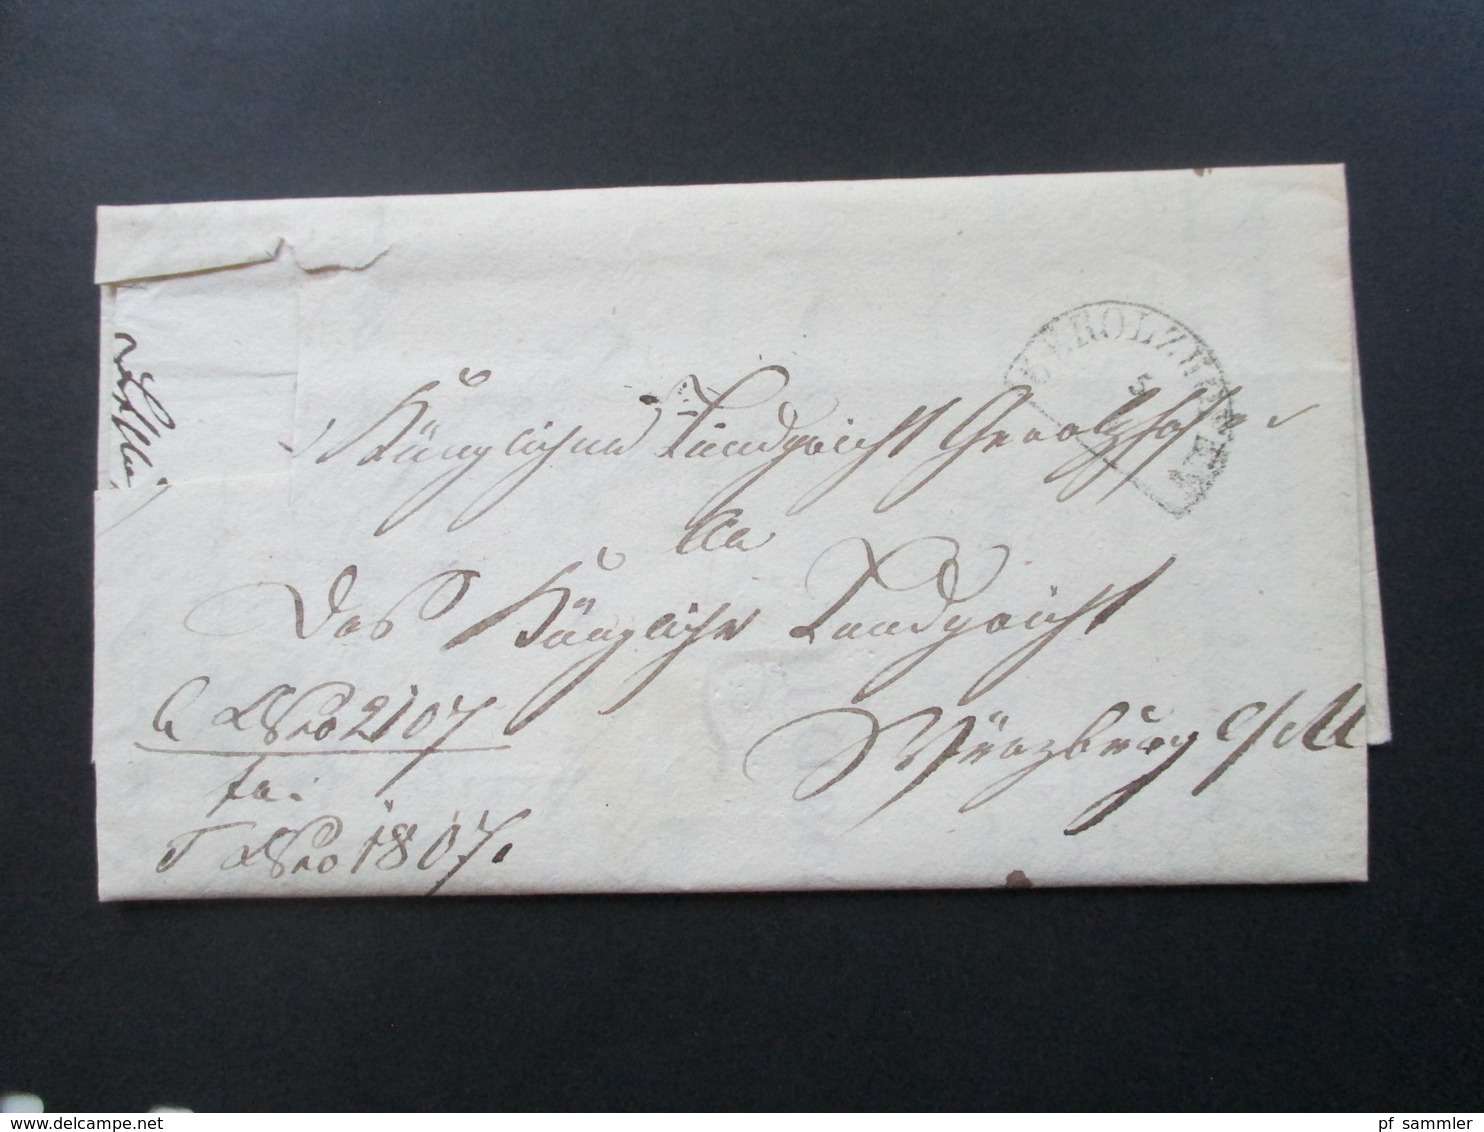 GEROLZHOFEN
5
Königliches Landgericht Gerolzhofen
An
Das Königliche Landgericht
Würzburg l/M
Nro 2107
Nro 1807.
delcampe.net
pf_sammler